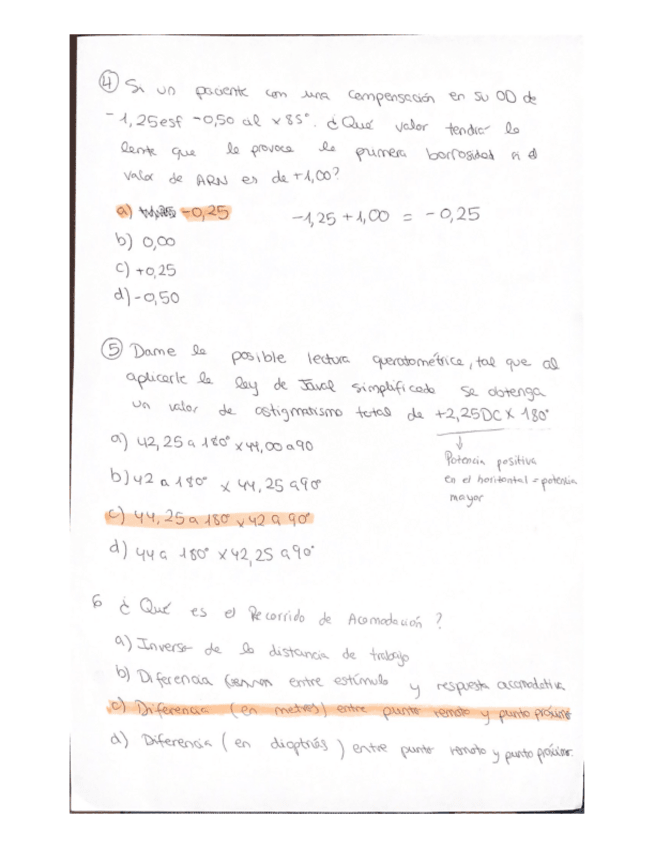 ④ Si un paciente con una compensación en su OD de
-1,25esf -0,50 al x85°. ¿Qué valor tendrá la
lente que le provoca la primera borrosidad si el
valor de ARN es de +1,00?
a) -0,25 -1,25 +1,00 = -0,25
b) 0,00
c) +0,25
d) -0,50
⑤ Dame la posible lectura queratométrica, tal que al
aplicarle la ley de Javal simplificada se obtenga
un valor de astigmatismo total de +2,25DC x 180°
a) 42,25 a 180° x 44,00 a 90
b) 42 a 180° x 44,25 a 90°
c) 44,25 a 180° x 42 a 90°
d) 44 a 180° x 42,25 a 90°
↓
Potencia positiva
en el horizontal = potencia
mayor
6 ¿Qué es el Recorrido de Acomodación?
a) Inverso de la distancia de trabajo
b) Diferencia entre estímulo y respuesta acomodativa
c) Diferencia (en metros) entre punto remoto y punto próximo
d) Diferencia (en dioptrías) entre punto remoto y punto próximo.